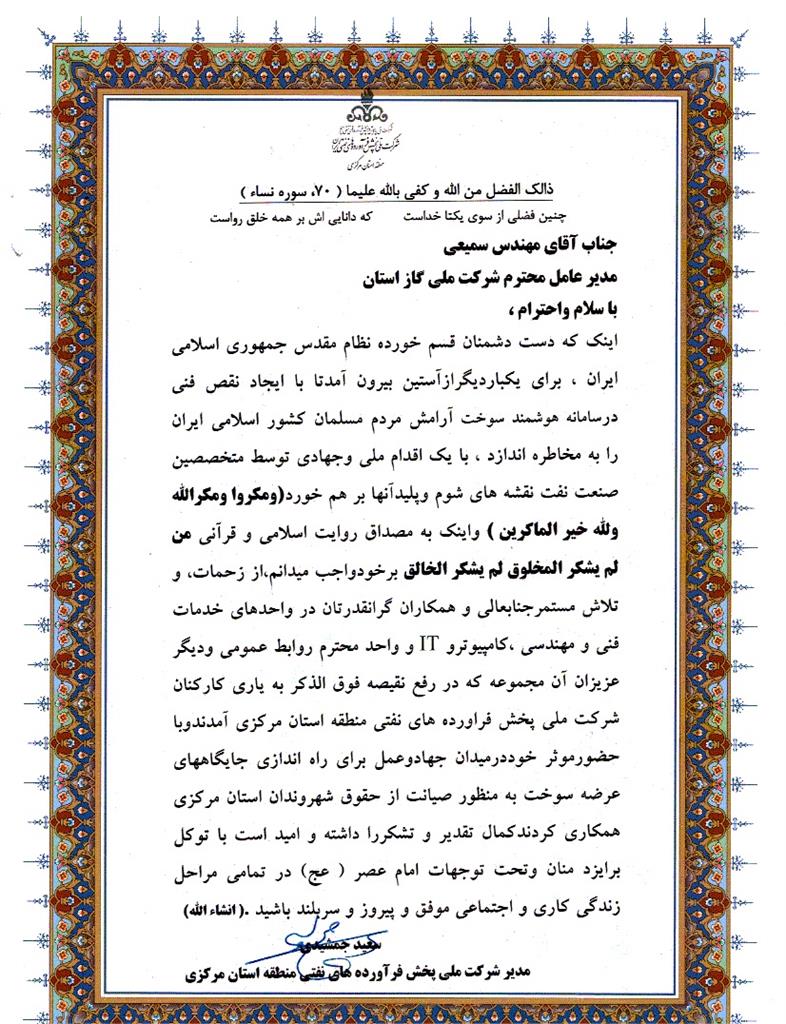 شرکت ملی پخش فرآورده‌های نفتی ایران
منطقه استان مرکزی
ذالک الفضل من الله و کفی بالله علیما ( ۷۰، سوره نساء )
چنین فضلی از سوی یکتا خداست که دانایی اش بر همه خلق رواست
جناب آقای مهندس سمیعی
مدیر عامل محترم شرکت ملی گاز استان
با سلام واحترام ،
اینک که دست دشمنان قسم خورده نظام مقدس جمهوری اسلامی
ایران ، برای یکباردیگرازآستین بیرون آمدتا با ایجاد نقص فنی
درسامانه هوشمند سوخت آرامش مردم مسلمان کشور اسلامی ایران
را به مخاطره اندازد ، با یک اقدام ملی وجهادی توسط متخصصین
صنعت نفت نقشه های شوم وپلیدآنها بر هم خورد(ومکروا ومکرالله
ولله خیر الماکرین ) واینک به مصداق روایت اسلامی و قرآنی من
لم یشکر المخلوق لم یشکر الخالق برخودواجب میدانم،از زحمات، و
تلاش مستمرجنابعالی و همکاران گرانقدرتان در واحدهای خدمات
فنی و مهندسی ،کامپیوترو IT و واحد محترم روابط عمومی ودیگر
عزیزان آن مجموعه که در رفع نقیصه فوق الذکر به یاری کارکنان
شرکت ملی پخش فراورده های نفتی منطقه استان مرکزی آمدندوبا
حضورموثر خوددرمیدان جهادوعمل برای راه اندازی جایگاههای
عرضه سوخت به منظور صیانت از حقوق شهروندان استان مرکزی
همکاری کردندکمال تقدیر و تشکررا داشته و امید است با توکل
برایزد منان وتحت توجهات امام عصر ( عج) در تمامی مراحل
زندگی کاری و اجتماعی موفق و پیروز و سربلند باشید .( انشاء الله )
سعید جمشیدی
مدیر شرکت ملی پخش فرآورده های نفتی منطقه استان مرکزی